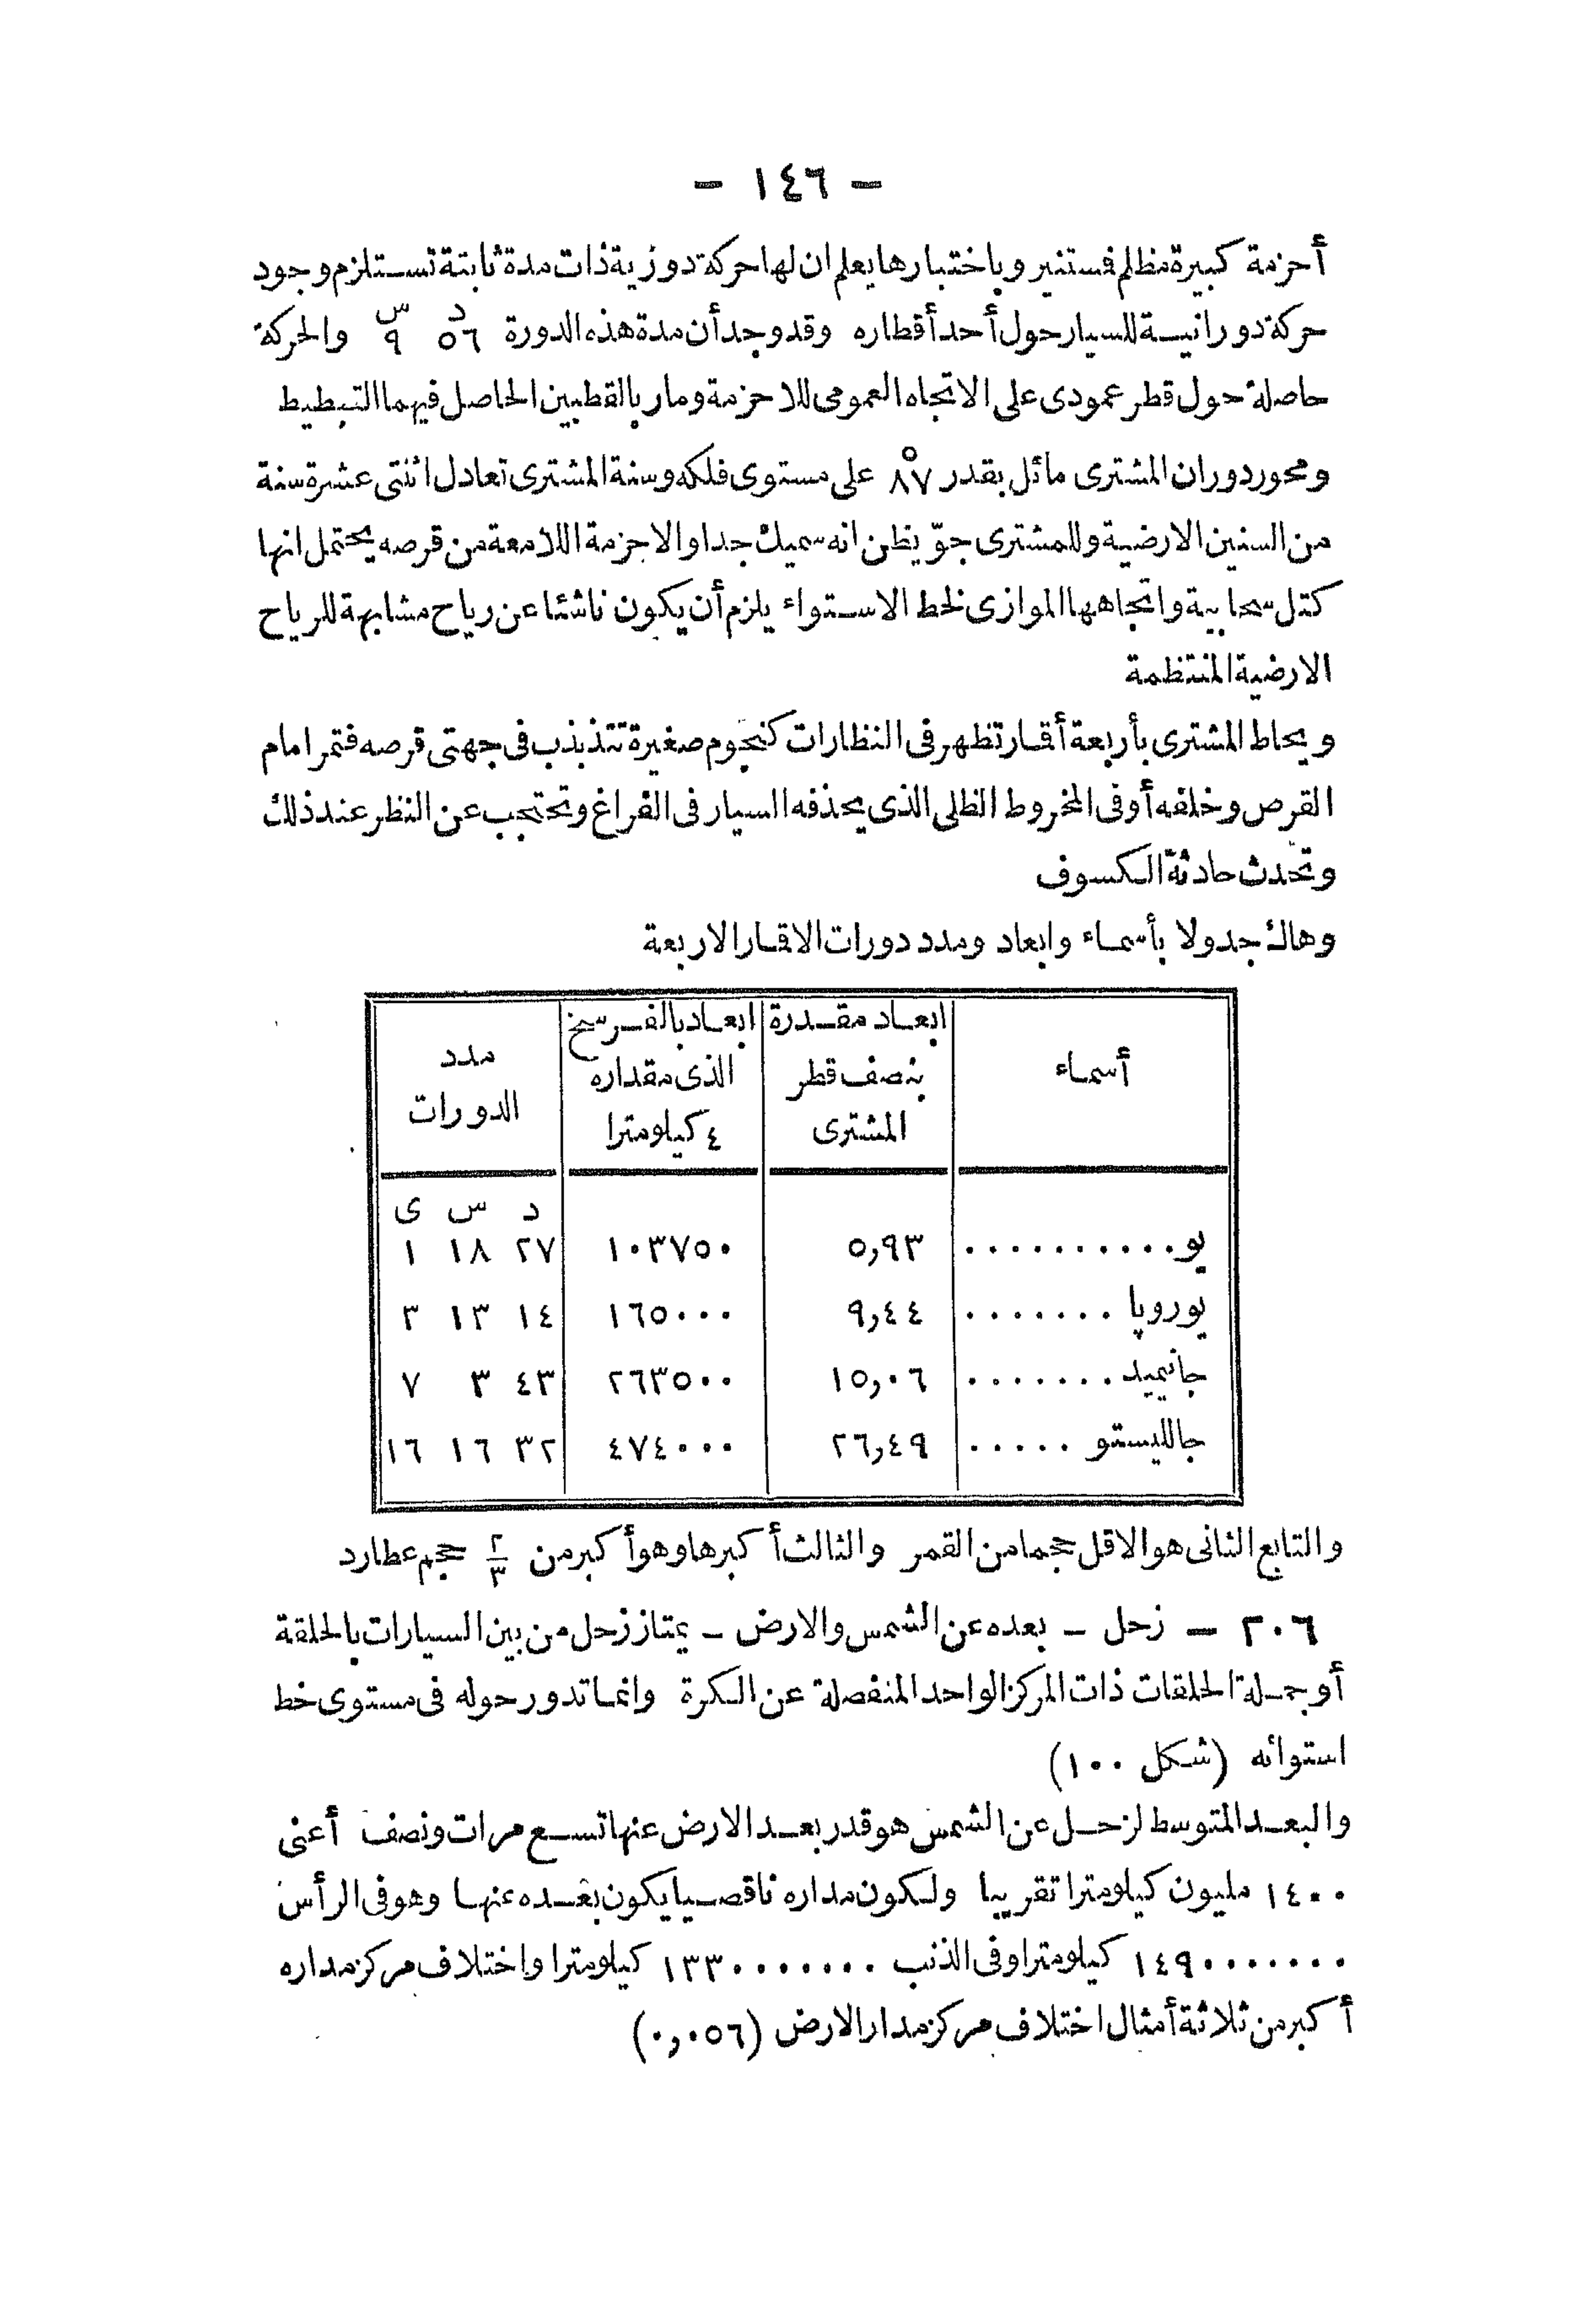 — ١٤٦ —
أحزمة كبيرة مظلم فستنير وباختبارها يعلم ان لها حركة دورية ذات مدة ثابتة تستلزم وجود
حركة دورانية للسيار حول أحد أقطاره وقد وجد أن مدة هذه الدورة ٥٦د ٩س والحركة
حاصلة حول قطر عمودى على الاتجاه العمومى للاحزمة ومار بالقطبين الحاصل فيهما التبطيط
ومحور دوران المشترى مائل بقدر ٨٧° على مستوى فلكه وسنة المشترى تعادل اثنتى عشرة سنة
من السنين الارضية وللمشترى جوّ يظن انه سميك جدا والاحزمة اللامعة من قرصه يحتمل انها
كتل سحابية واتجاهها الموازى لخط الاستواء يلزم أن يكون ناشئا عن رياح مشابهة للرياح
الارضية المنتظمة
ويحاط المشترى بأربعة أقمار تظهر فى النظارات كنجوم صغيرة تتذبذب فى جهتى قرصه فتمر امام
القرص وخلفه أو فى المخروط الظلى الذى يحذفه السيار فى الفراغ وتحتجب عن النظر عند ذلك
وتحدث حادثة الكسوف
وهاك جدولا بأسماء وابعاد ومدد دورات الاقمار الاربعة
أسماء | ابعاد مقدرة بنصف قطر المشترى | ابعاد بالفرسخ الذى مقداره ٤ كيلومترا | مدد الدورات
د س ى
يو.......... ٥,٩٣ ١٠٣٧٥٠ ٢٧ ١٨ ١
يوروپا ....... ٩,٤٤ ١٦٥٠٠٠ ١٤ ١٣ ٣
جانيميد....... ١٥,٠٦ ٢٦٣٥٠٠ ٤٣ ٣ ٧
جالليستو ..... ٢٦,٤٩ ٤٧٤٠٠٠ ٣٢ ١٦ ١٦
والتابع الثانى هو الاقل حجما من القمر والثالث أكبرها وهو أكبر من ٢/٣ حجم عطارد
٢٠٦ — زحل — بعده عن الشمس والارض — يمتاز زحل من بين السيارات بالحلقة
أو جملة الحلقات ذات المركز الواحد المنفصلة عن الكرة وانما تدور حوله فى مستوى خط
استوائه (شكل ١٠٠)
والبعد المتوسط لزحل عن الشمس هو قدر بعد الارض عنها تسع مرات ونصف أعنى
١٤٠٠ مليون كيلومترا تقريبا ولكون مداره ناقصيا يكون بعده عنها وهو فى الرأس
١٤٩٠٠٠٠٠٠٠ كيلومترا وفى الذنب ١٣٣٠٠٠٠٠٠٠ كيلومترا واختلاف مركز مداره
أكبر من ثلاثة أمثال اختلاف مركز مدار الارض (٠,٠٥٦)